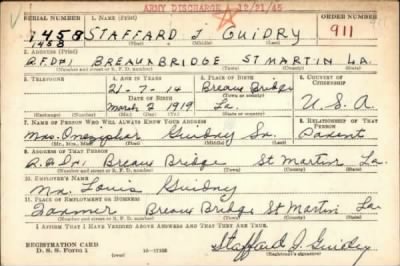 ARMY DISCHARGE 12/21/45
SERIAL NUMBER 1. NAME (Print) ORDER NUMBER
1458 STAFFARD J GUIDRY 911
1458 (First) (Middle) (Last)
2. ADDRESS (Print)
R.F.D#1 BREAUXBRIDGE ST MARTIN LA.
(Number and street or R. F. D. number) (Town) (County) (State)
3. TELEPHONE 4. AGE IN YEARS 5. PLACE OF BIRTH 6. COUNTRY OF CITIZENSHIP
21-7-14 Breaux Bridge
DATE OF BIRTH (Town or county)
March 2 1919 La. U.S.A.
(Exchange) (Number) (Mo.) (Day) (Yr.) (State or country)
7. NAME OF PERSON WHO WILL ALWAYS KNOW YOUR ADDRESS 8. RELATIONSHIP OF THAT PERSON
Mrs. Guidry Sr. Parent
(Mr., Mrs., Miss) (First) (Middle) (Last)
9. ADDRESS OF THAT PERSON
Breaux Bridge St Martin La
(Number and street or R. F. D. number) (Town) (County) (State)
10. EMPLOYER'S NAME
Mr. Louis Guidry
11. PLACE OF EMPLOYMENT OR BUSINESS
Farmer Breaux Bridge St Martin La
(Number and street or R. F. D. number) (Town) (County) (State)
I AFFIRM THAT I HAVE VERIFIED ABOVE ANSWERS AND THAT THEY ARE TRUE.
REGISTRATION CARD
D. S. S. Form 1 Staffard J. Guidry
(Registrant's signature)